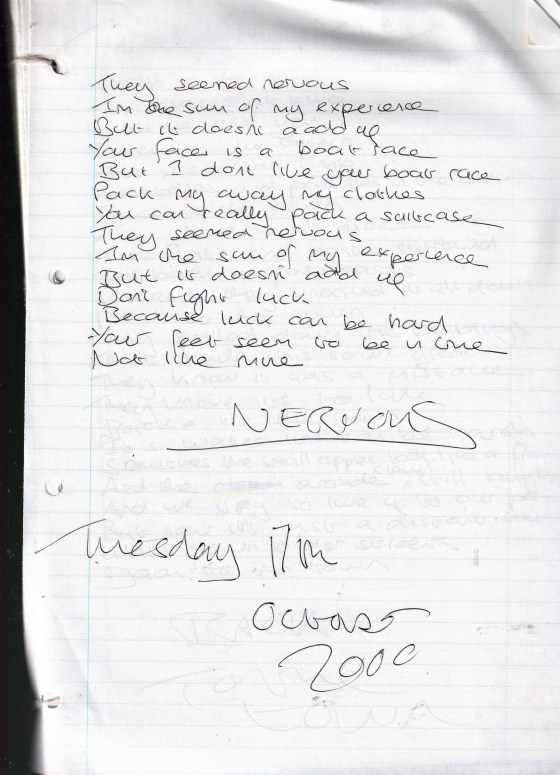 They seemed nervous
Im the sum of my experence
But it doesnt a add up
Your face is a boat race
But I dont like your boat race
Pack my away my clothes
You can really pack a suitcase
They seemed nervous
Im the sum of my experence
But it doesnt add up
Dont fight luck
Because luck can be hard
Your feet seem to be in line
Not like mine
NERVOUS
Tuesday 17th
October
2000